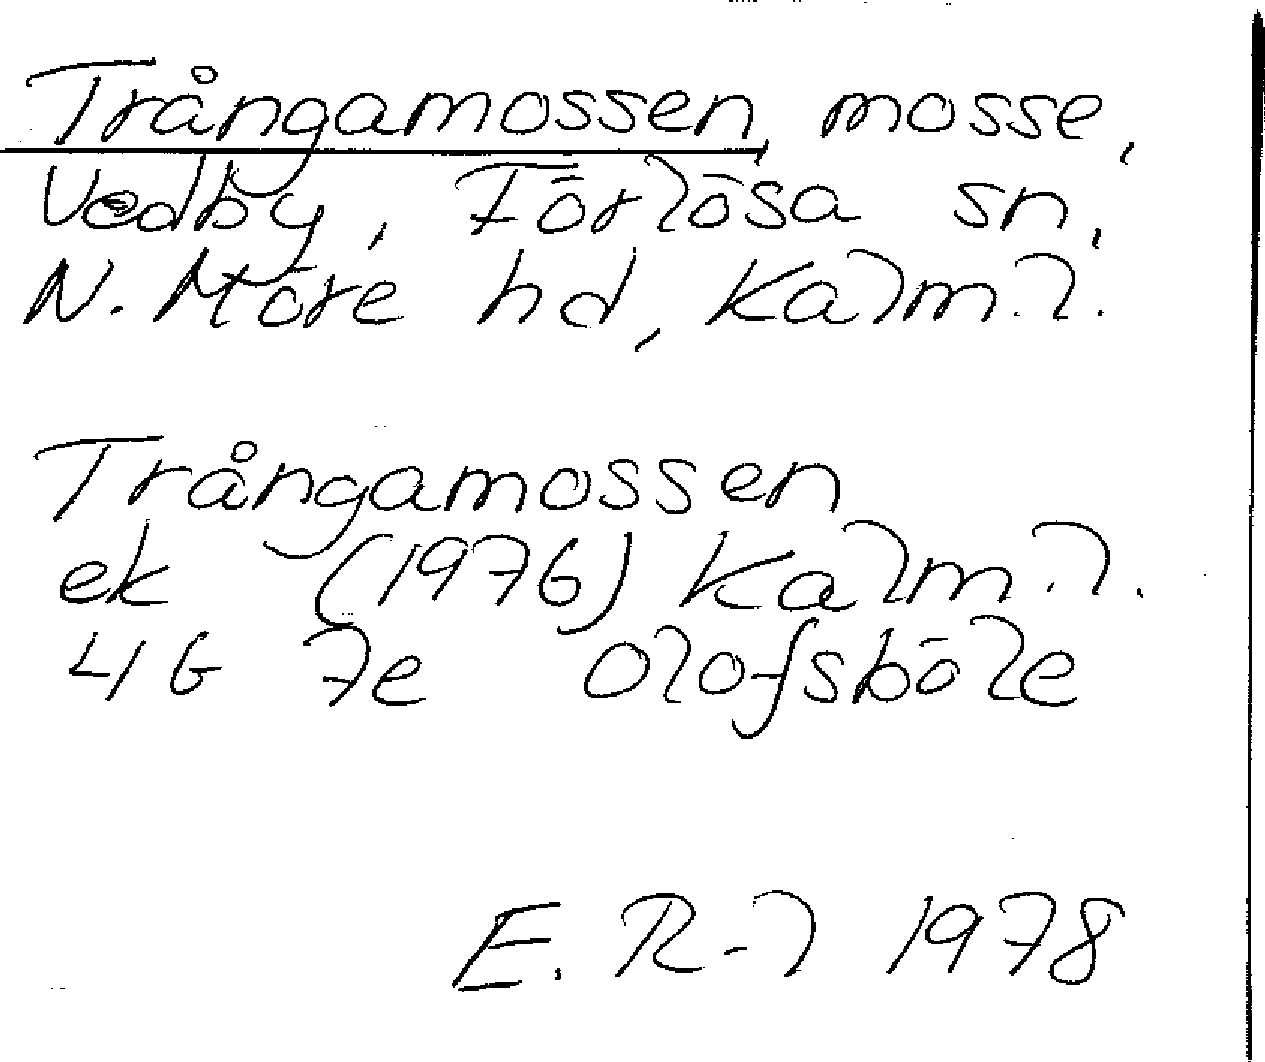 Trångamossen, mosse,
Vedby, Förlösa sn,
N. Möre hd, Kalm.l.
Trångamossen
ek (1976) Kalm.l.
4G 7e Olofsböle
E. R-l 1978